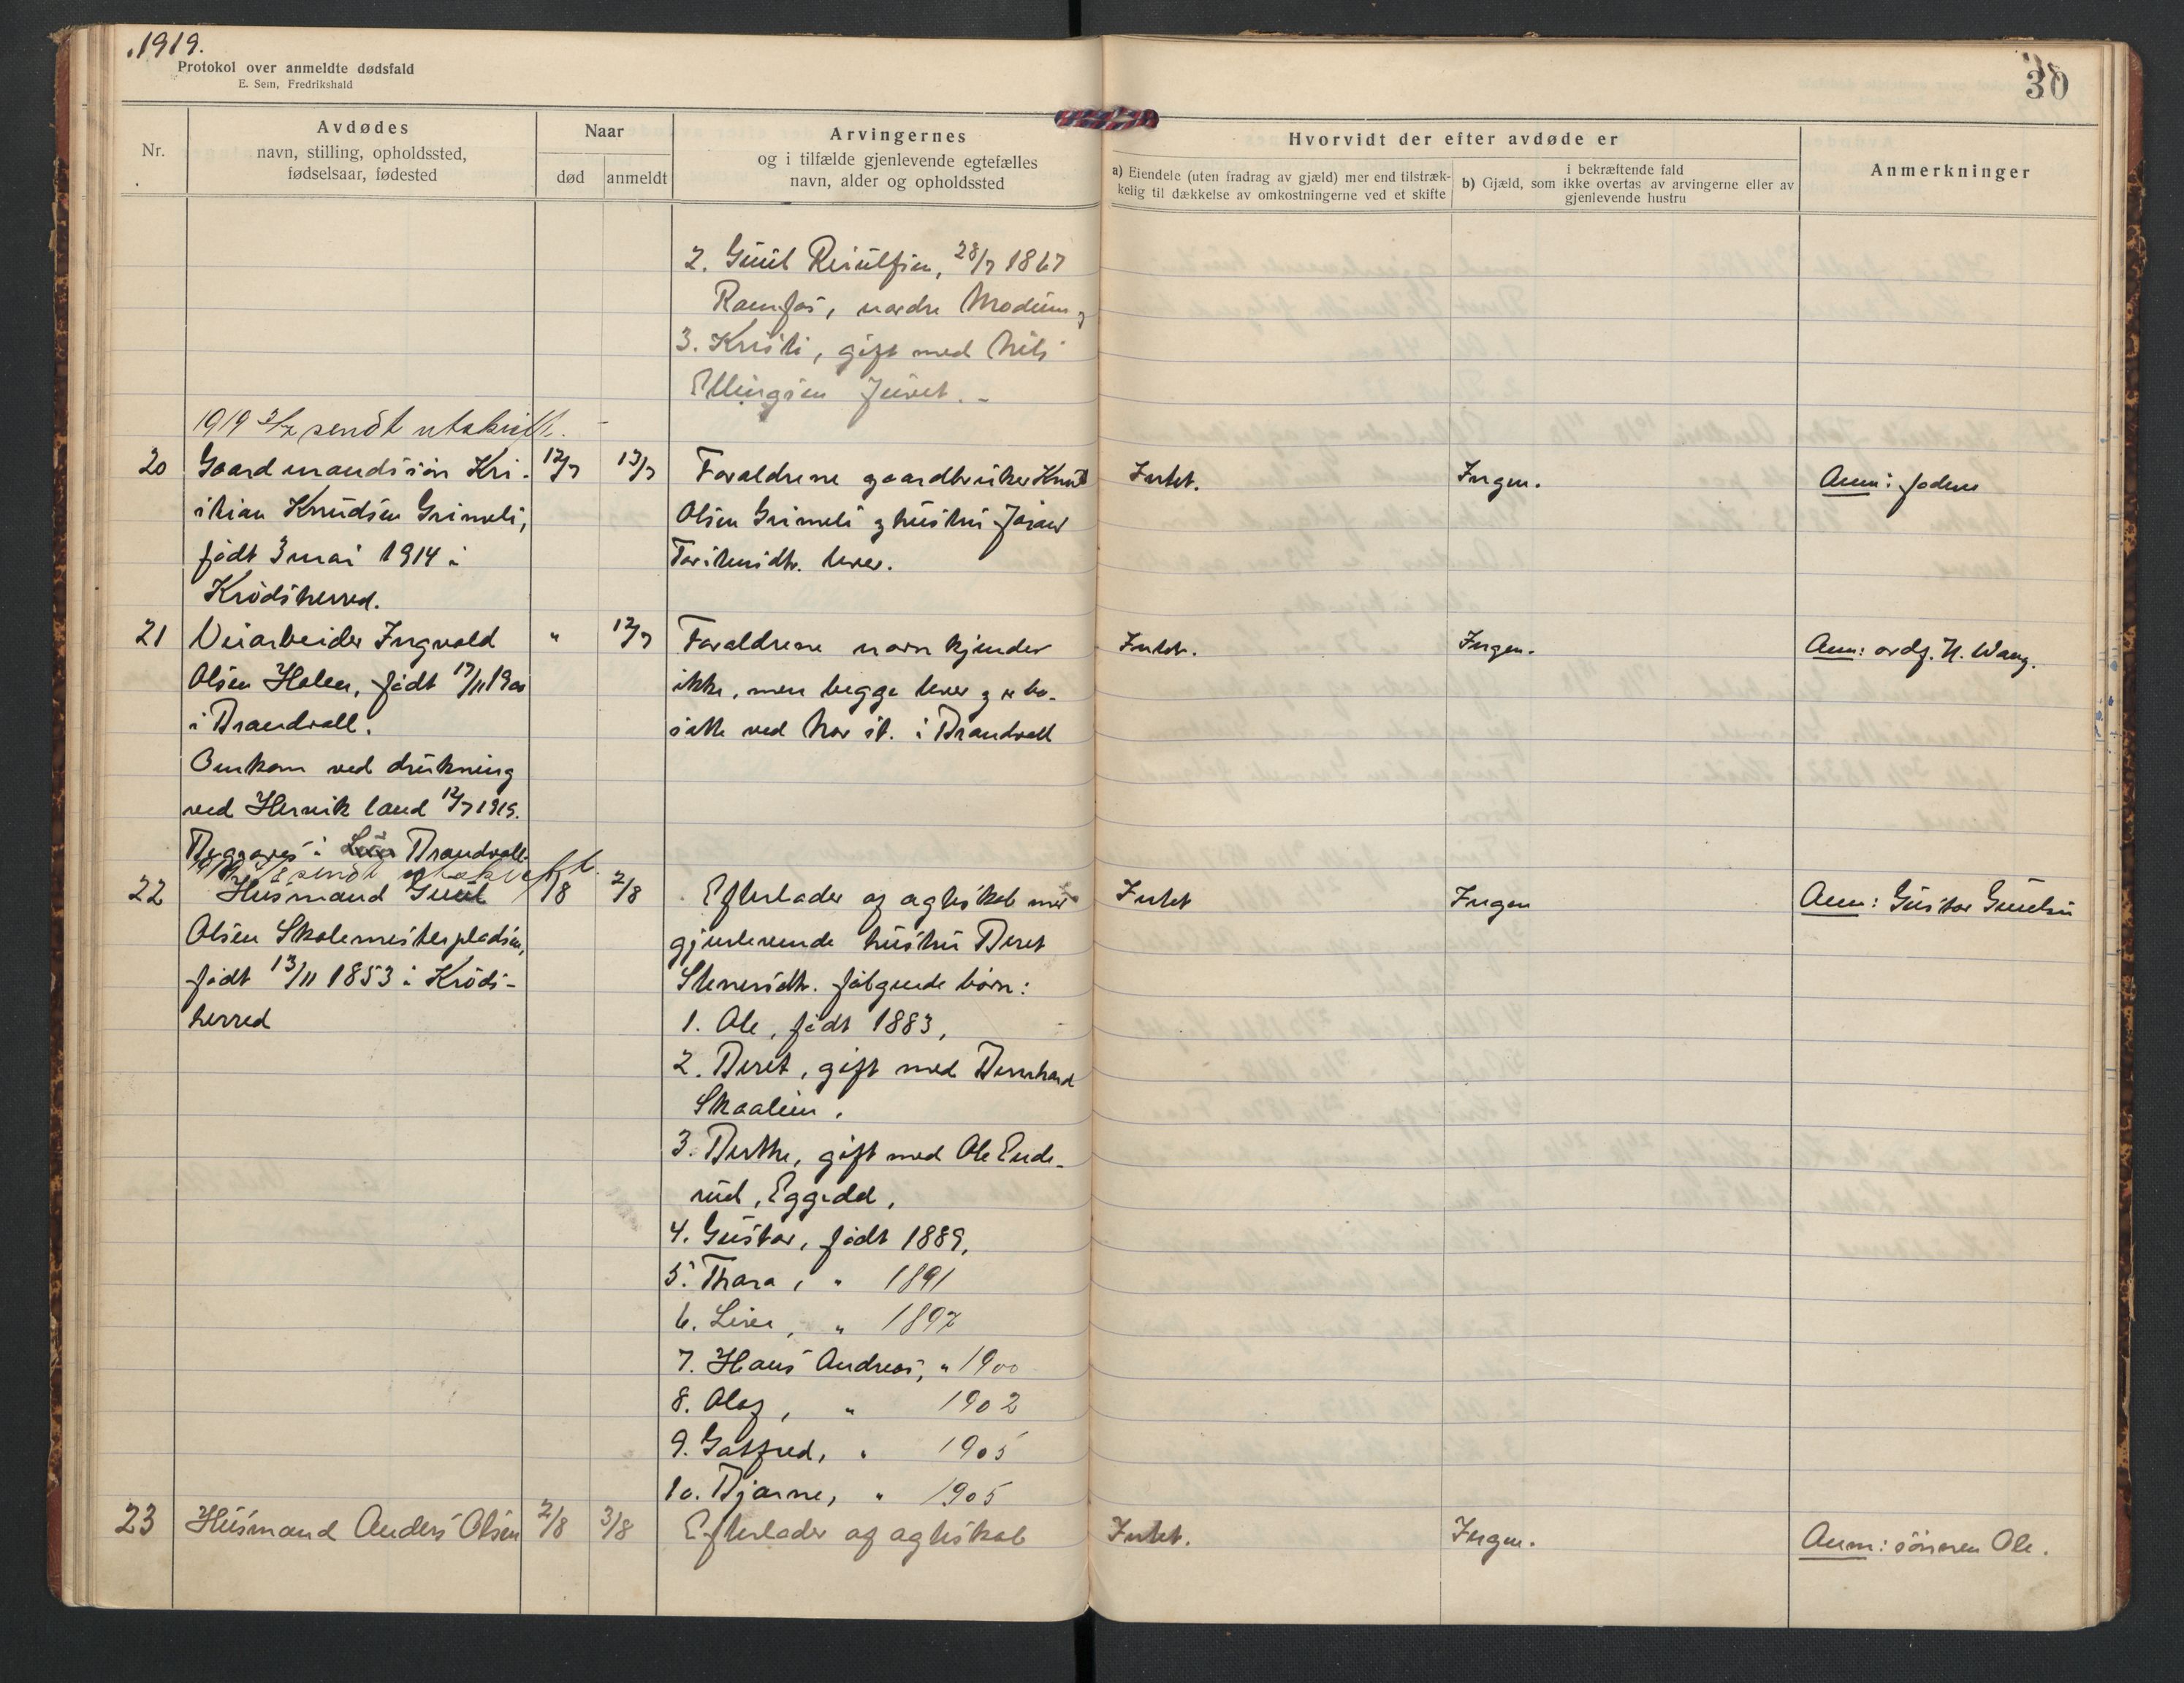 1919.
Protokol over anmeldte dødsfald
E. Sem, Fredrikshald
30
Nr.
Avdødes
navn, stilling, opholdssted,
fødselsaar, fødested
Naar
død
anmeldt
Arvingernes
og i tilfælde gjenlevende egtefælles
navn, alder og opholdssted
Hvorvidt der efter avdøde er
a) Eiendele (uten fradrag av gjæld) mer end tilstræk-
kelig til dækkelse av omkostningerne ved et skifte
i bekræftende fald
b) Gjæld, som ikke overtas av arvingerne eller av
gjenlevende hustru
Anmerkninger
2. Guul 28/7 1867
Ramfos, nordre Modum,
3. Kristi, gift med Nils
Ellingsen Juvet. -
1919 3/7 sendt utskrift.
20 Gaardmandssøn Kri- 12/7 13/7 Forældrene gaardbruker Knut Intet. Ingen. Anm: faderen
stian Knudsen Grimeli, Olsen Grimeli og hustru Jøran
født 3 mai 1914 i Torstensdtr. lever.
Krødsherred.
21 Veiarbeider Ingvald " 12/7 Forældrene navn kjendes Intet. Ingen. Anm: ordf. N. Wang.
Olsen Holen, født 17/11 1900 ikke, men begge lever og er bo-
i Brandvall. satte ved Nor st. i Brandvall
Omkom ved drukning
ved Hervik land 12/7 1919.
Begraves i Brandvall.
sendt utskrift.
22 Husmand Guul 1/8 2/8 Efterlader af egteskab med Intet Ingen Anm: Gustav Guulsen
Olsen Skolemesterpladsen, gjenlevende hustru Beret
født 13/11 1853 i Krøds- Stenersdtr. følgende børn:
herred
1. Ole, født 1883,
2. Beret, gift med Bernhard
Skaalien.
3. Berthe, gift med Ole Ende-
rud, Eggedal,
4. Gustav, født 1889,
5. Thora, " 1891
6. Lina, " 1897
7. Hans Andreas, " 1900
8. Olaf, " 1902
9. Gotfred, " 1905
10. Bjarne, " 1905
23 Husmand Anders Olsen 2/8 3/8 Efterlader af egteskab Intet. Ingen. Anm: sønnen Ole.